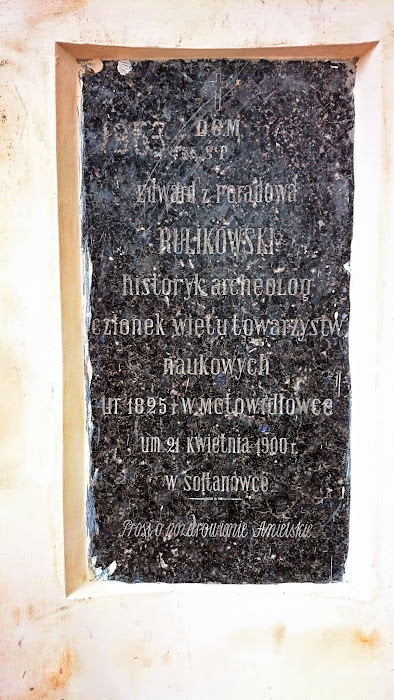 1967
DOM
Edward z Poradowa
RULIKOWSKI
historyk archeolog
członek wielu towarzystw
naukowych
ur 1825 r w Motowidłowce
um 21 kwietnia 1900 r.
w Sołtanówce
Prosi o pozdrowienie Anielskie